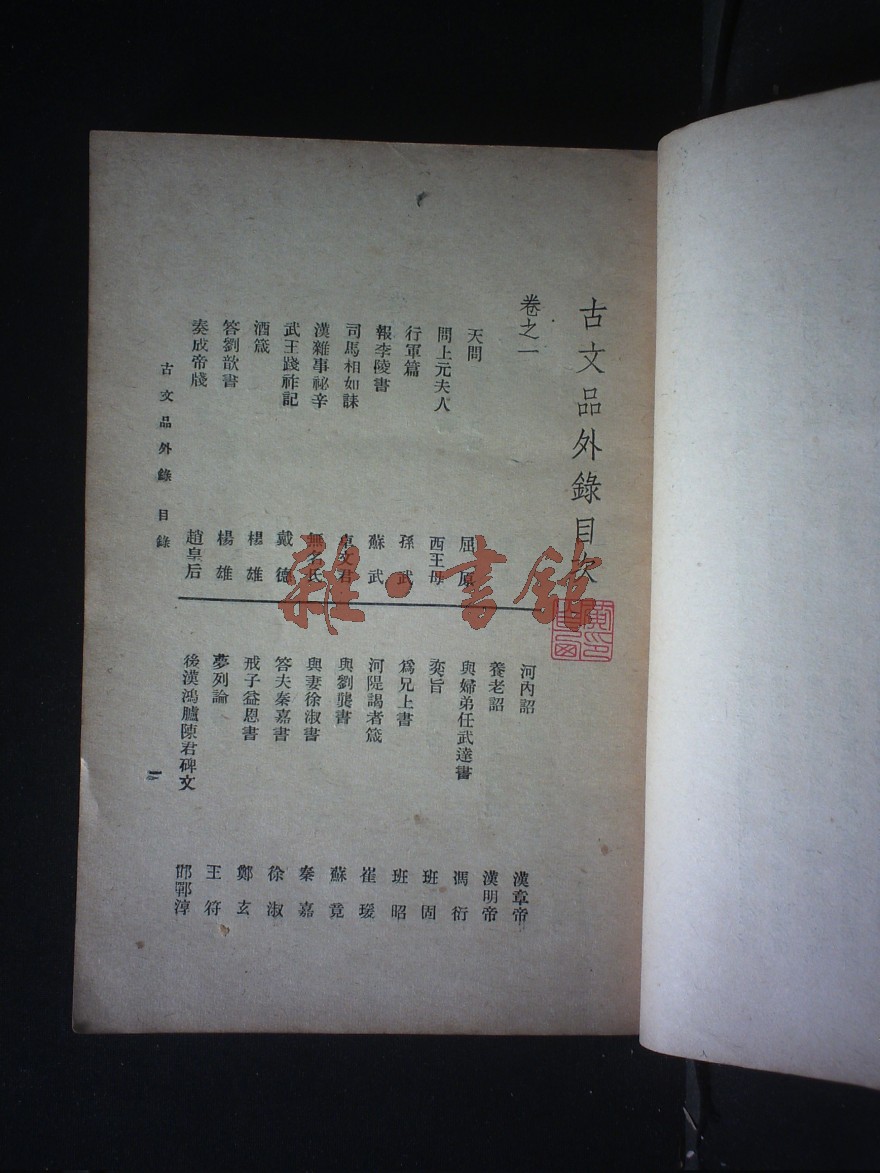 古文品外錄目次
卷之一
天問 屈原
問上元夫人 西王母
行軍篇 孫武
報李陵書 蘇武
司馬相如誄 卓文君
漢雜事祕辛 無名氏
武王踐祚記 戴德
酒箴 楊雄
答劉歆書 楊雄
奏成帝牋 趙皇后
河內詔 漢章帝
養老詔 漢明帝
與婦弟任武達書 馮衍
奕旨 班固
為兄上書 班昭
河隄謁者箴 崔瑗
與劉龔書 蘇竟
與妻徐淑書 秦嘉
答夫秦嘉書 徐淑
戒子益恩書 鄭玄
夢列論 王符
後漢鴻臚陳君碑文 邯鄲淳
古文品外錄 目錄
一
雜·書館